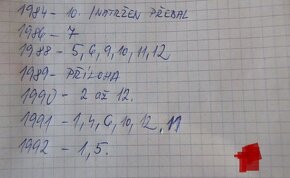 1984 - 10. (NATRŽEN PŘEBAL
1986 - 7
1988 - 5, 6, 9, 10, 11, 12
1989 - PŘÍLOHA
1990 - 2 AŽ 12.
1991 - 1, 4, 6, 10, 12, 11
1992 - 1, 5.